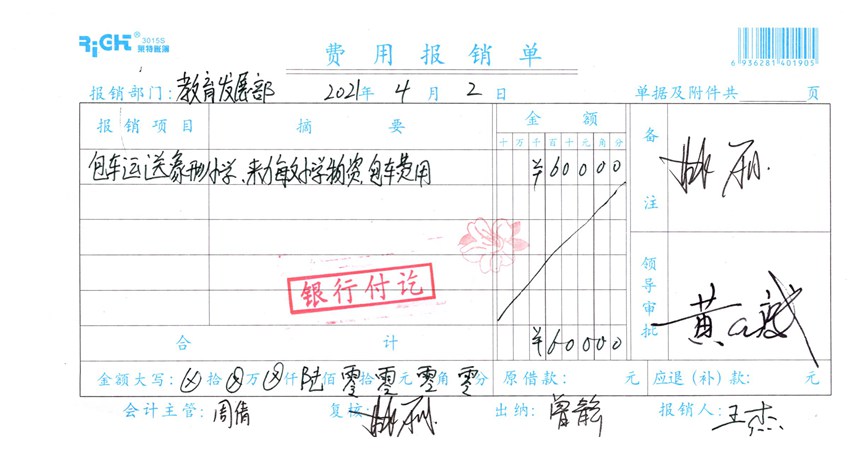 RiGHT® 3015S
莱特账簿
费用报销单
6 936281 401905
报销部门:教育发展部 2021年4月2日 单据及附件共 页
报销项目 摘要 金额 备注
十万千百十元角分
包车运送 小学、 小学物资,包车费用 ¥60000
银行付讫
领导审批
合计 ¥60000
金额大写:⊗拾⊗万⊗仟陆佰零拾零元零角零分 原借款: 元 应退(补)款: 元
会计主管:周倩 复核: 出纳:曾能 报销人:王杰